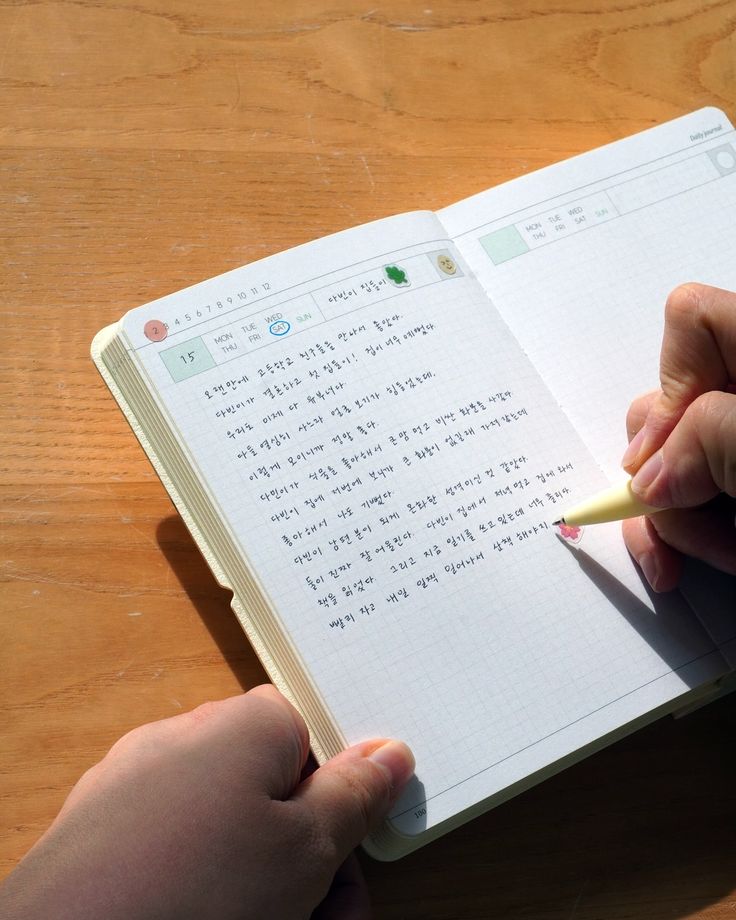 2 3 4 5 6 7 8 9 10 11 12
15
MON TUE WED
THU FRI SAT SUN
다빈이 집들이
오랜만에 고등학교 친구들을 만나서 좋았다.
다빈이가 결혼하고 첫 집들이! 집이 너무 예뻤다.
우리도 이제 다 유부녀다.
다들 열심히 사느라 얼굴 보기가 힘들었는데,
이렇게 모이니까 정말 좋다.
다빈이가 식물을 좋아해서 큰맘 먹고 비싼 화분을 사갔다.
다빈이 집에 저번에 보니까 큰 화분이 없길래 가져갔는데
좋아해서 나도 기뻤다.
다빈이 남편분이 되게 온화한 성격이신 것 같았다.
둘이 진짜 잘 어울린다. 다빈이 집에서 저녁 먹고 집에 와서
책을 읽었다. 그리고 지금 일기를 쓰고 있는데 너무 졸리다.
빨리 자고 내일 일찍 일어나서 산책 해야지
100
Daily journal
MON TUE WED
THU FRI SAT SUN